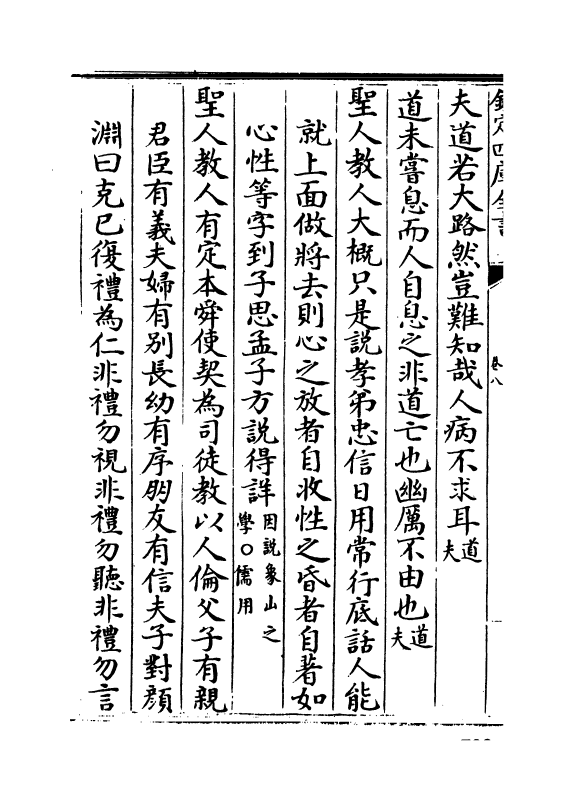 欽定四庫全書
卷八
夫道若大路然豈難知哉人病不求耳道夫
道未嘗息而人自息之非道亡也幽厲不由也道夫
聖人教人大概只是說孝弟忠信日用常行底話人能
就上面做將去則心之放者自收性之昏者自著如
心性等字到子思孟子方說得詳因說象山之學○儒用
聖人教人有定本舜使契為司徒教以人倫父子有親
君臣有義夫婦有別長幼有序朋友有信夫子對顏
淵曰克己復禮為仁非禮勿視非禮勿聽非禮勿言